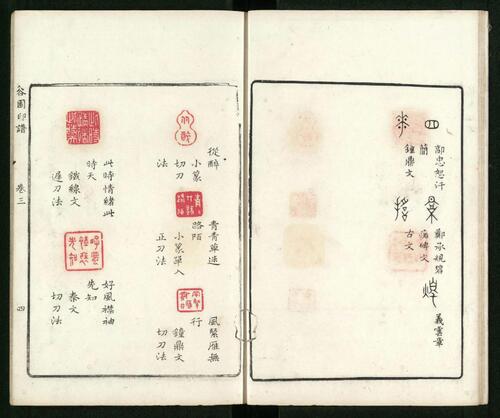 郭忠恕汗
簡
鐘鼎文
鄭承規碧
落碑文
古文
義雲章
從醉
小篆
切刀
法
青青草迷
路陌
小篆單入
正刀法
風緊雁無
行
鐘鼎文
切刀法
此時情緒此
時天
鐵線文
遲刀法
好風襟袖
先知
秦文
切刀法
谷園印譜
卷三
四